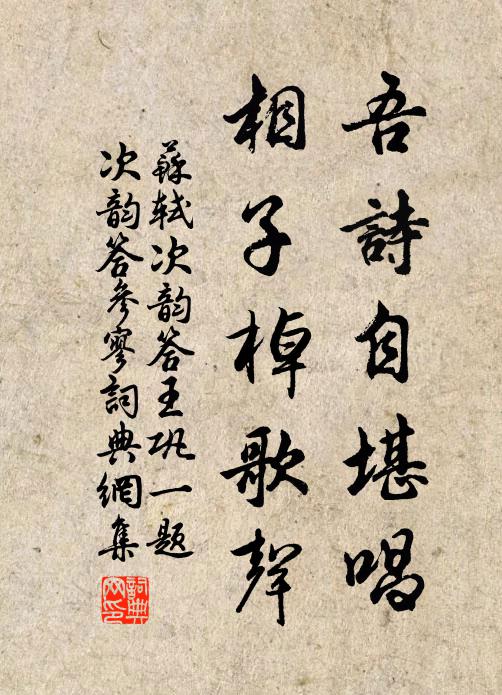 吾詩自堪唱
相子棹歌聲
蘇軾次韵答王巩一題
次韵答參寥詞典網集
詞典網印